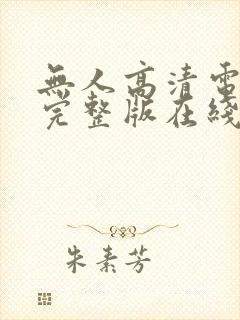 無人高清電
完整版在綫
朱素芳